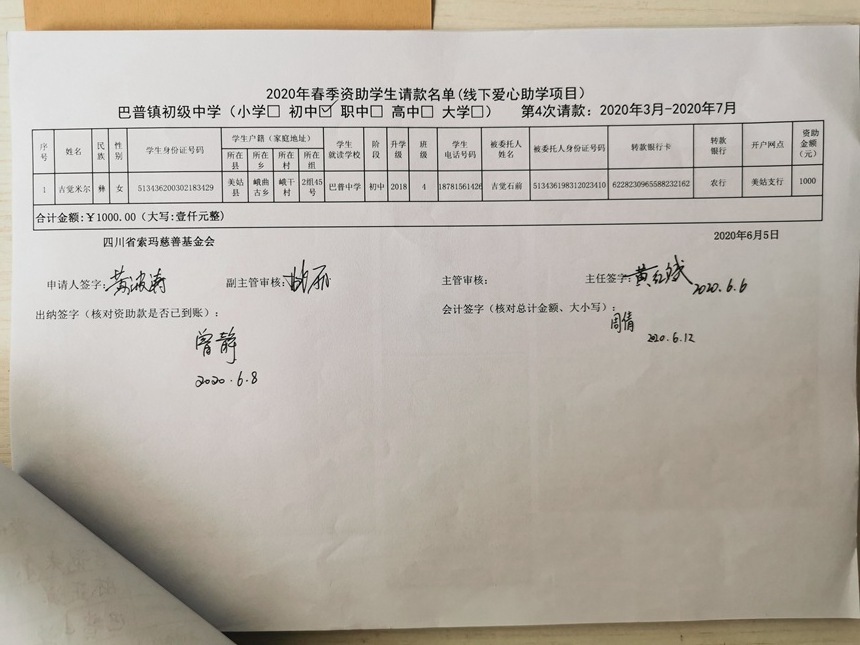 2020年春季资助学生请款名单(线下爱心助学项目)
巴普镇初级中学（小学□ 初中☑ 职中□ 高中□ 大学□） 第4次请款：2020年3月-2020年7月
序号 姓名 民族 性别 学生身份证号码 学生户籍（家庭地址） 学生就读学校 阶段 升学级 班级 学生电话号码 被委托人姓名 被委托人身份证号码 转款银行卡 转款银行 开户网点 资助金额（元）
所在县 所在乡 所在村 所在组
1 吉觉米尔 彝 女 513436200302183429 美姑县 峨曲古乡 峨干村 2组45号 巴普中学 初中 2018 4 18781561426 吉觉石前 513436198312023410 6228230965588232162 农行 美姑支行 1000
合计金额:￥1000.00（大写:壹仟元整）
四川省索玛慈善基金会 2020年6月5日
申请人签字： 副主管审核： 主管审核： 主任签字：黄红斌
2020.6.6
出纳签字（核对资助款是否已到账）： 会计签字（核对总计金额、大小写）：
周倩
曾静
2020.6.12
2020.6.8